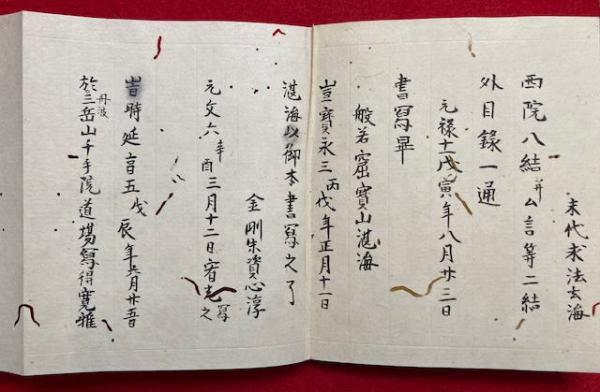 末代求法玄海
西院八結并ム言等二結
外目録一通
元禄十一戊寅年八月廿三日
書寫畢
般若窟寶山湛海
豈寳永三丙戌年正月十一日
湛海以御本書寫之了
金剛朱資心淳
元文六辛酉三月十二日寫之
旹時延享五戊辰年月廿
於丹波三岳山千手院道場寫得寛雅